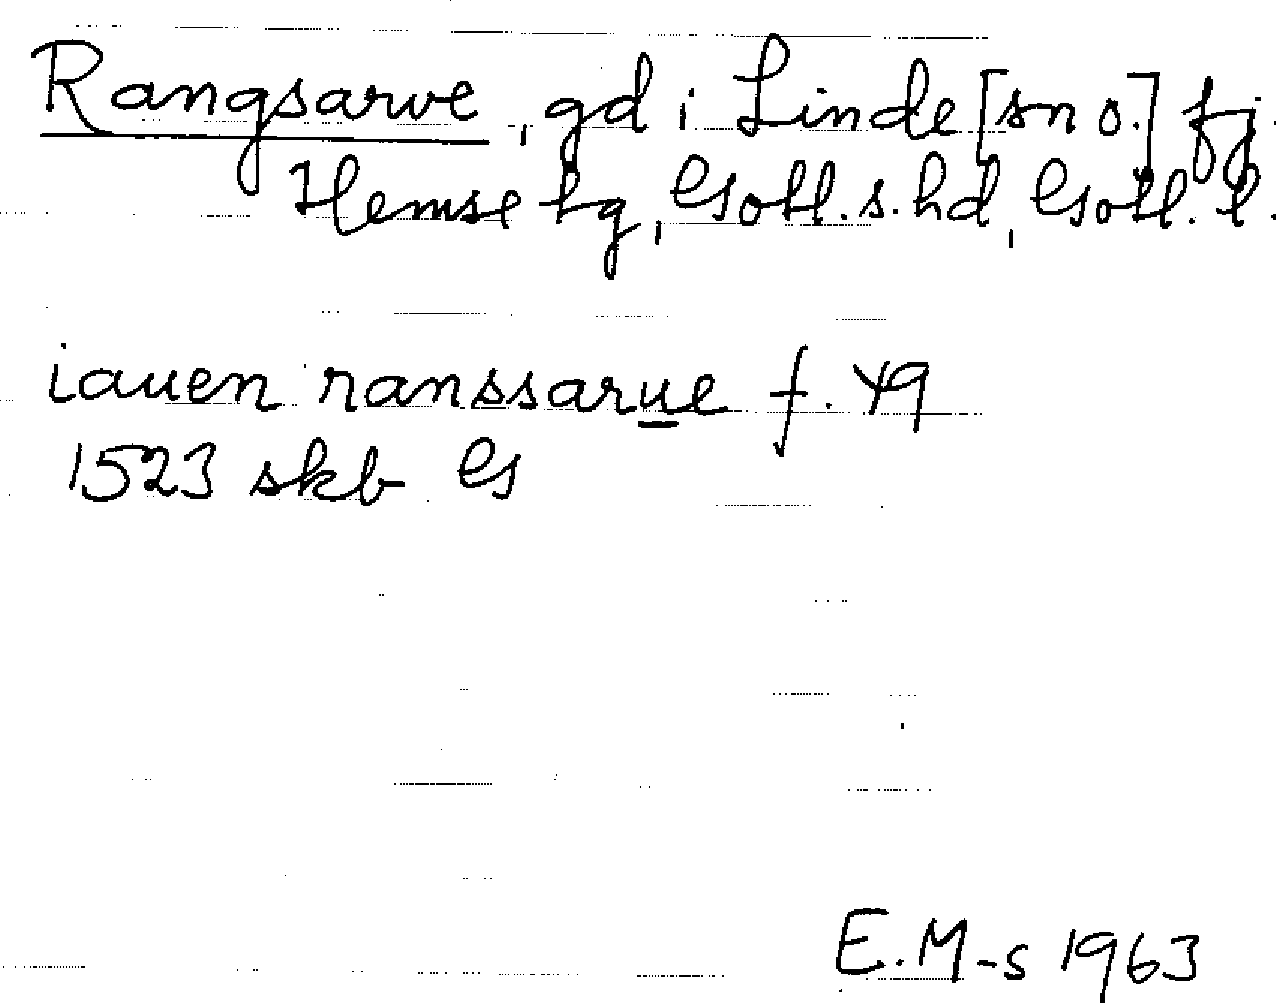 Rangsarve, gd i Linde [sn o.] fg.
Hemse tg, Gotl. s. hd, Gotl. l.
iauen ranssarue f. 49
1523 skb G
E.M-s 1963